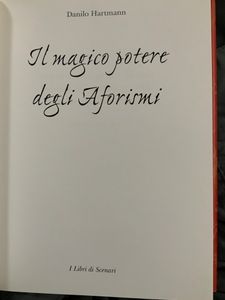 Danilo Hartmann
Il magico potere
degli Aforismi
I Libri di Scenari